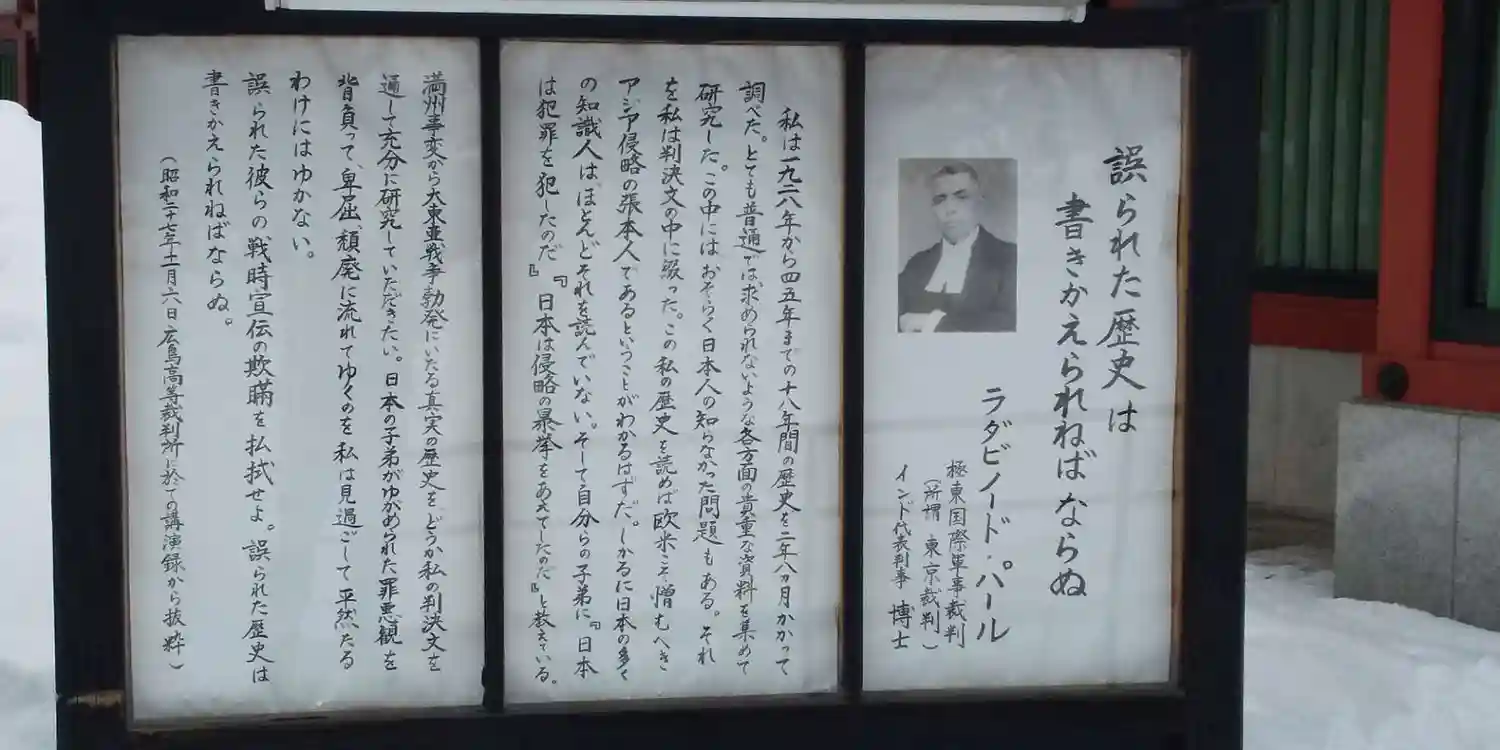 誤られた歴史は
書きかえられねばならぬ
ラダビノード・パール
極東国際軍事裁判
（所謂 東京裁判）
インド代表判事 博士
私は一九二八年から四五年までの十八年間の歴史を二年八カ月かかって
調べた。とても普通では求められないような各方面の貴重な資料を集めて
研究した。この中にはおそらく日本人の知らなかった問題もある。それ
を私は判決文の中に綴った。この私の歴史を読めば欧米こそ憎むべき
アジア侵略の張本人であるということがわかるはずだ。しかるに日本の多く
の知識人は、ほとんどそれを読んでいない。そして自分らの子弟に『日本
は犯罪を犯したのだ』『日本は侵略の暴挙をあえてしたのだ』と教えている。
満州事変から大東亜戦争勃発にいたる真実の歴史を、どうか私の判決文を
通して充分に研究していただきたい。日本の子弟がゆがめられた罪悪観を
背負って、卑屈、頽廃に流れてゆくのを私は見過ごして平然たる
わけにはゆかない。
誤られた彼らの戦時宣伝の欺瞞を払拭せよ。誤られた歴史は
書きかえられねばならぬ。
（昭和二十七年十一月六日 広島高等裁判所に於ての講演録から抜粋）